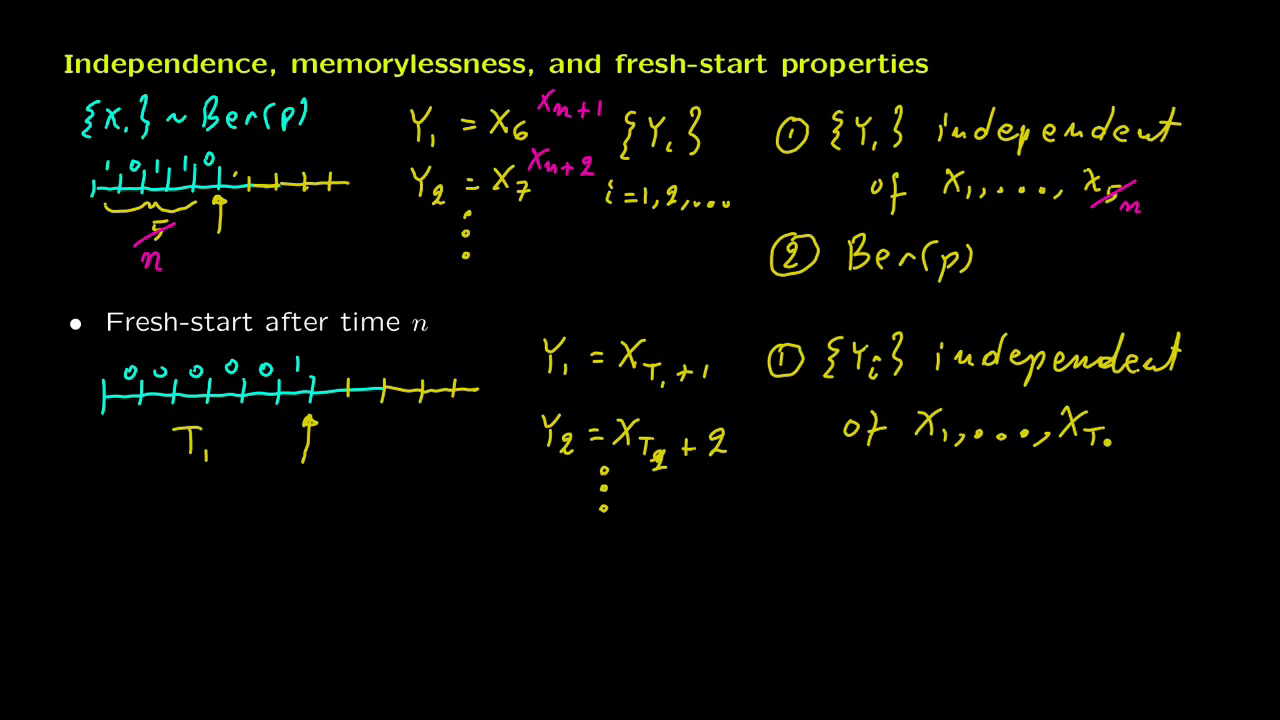 Independence, memorylessness, and fresh-start properties
{X.} ~ Ber(p)
1 0 1 1 0
5
n
Y₁ = X₆ Xₙ₊₁
Y₂ = X₇ Xₙ₊₂
{Yᵢ}
i = 1, 2, ...
① {Yᵢ} independent
of X₁, ..., X₅ n
② Ber(p)
• Fresh-start after time n
0 0 0 0 0 1
T₁
Y₁ = X_{T₁+1}
Y₂ = X_{T₂+2}
① {Yᵢ} independent
of X₁, ..., X_{T.}